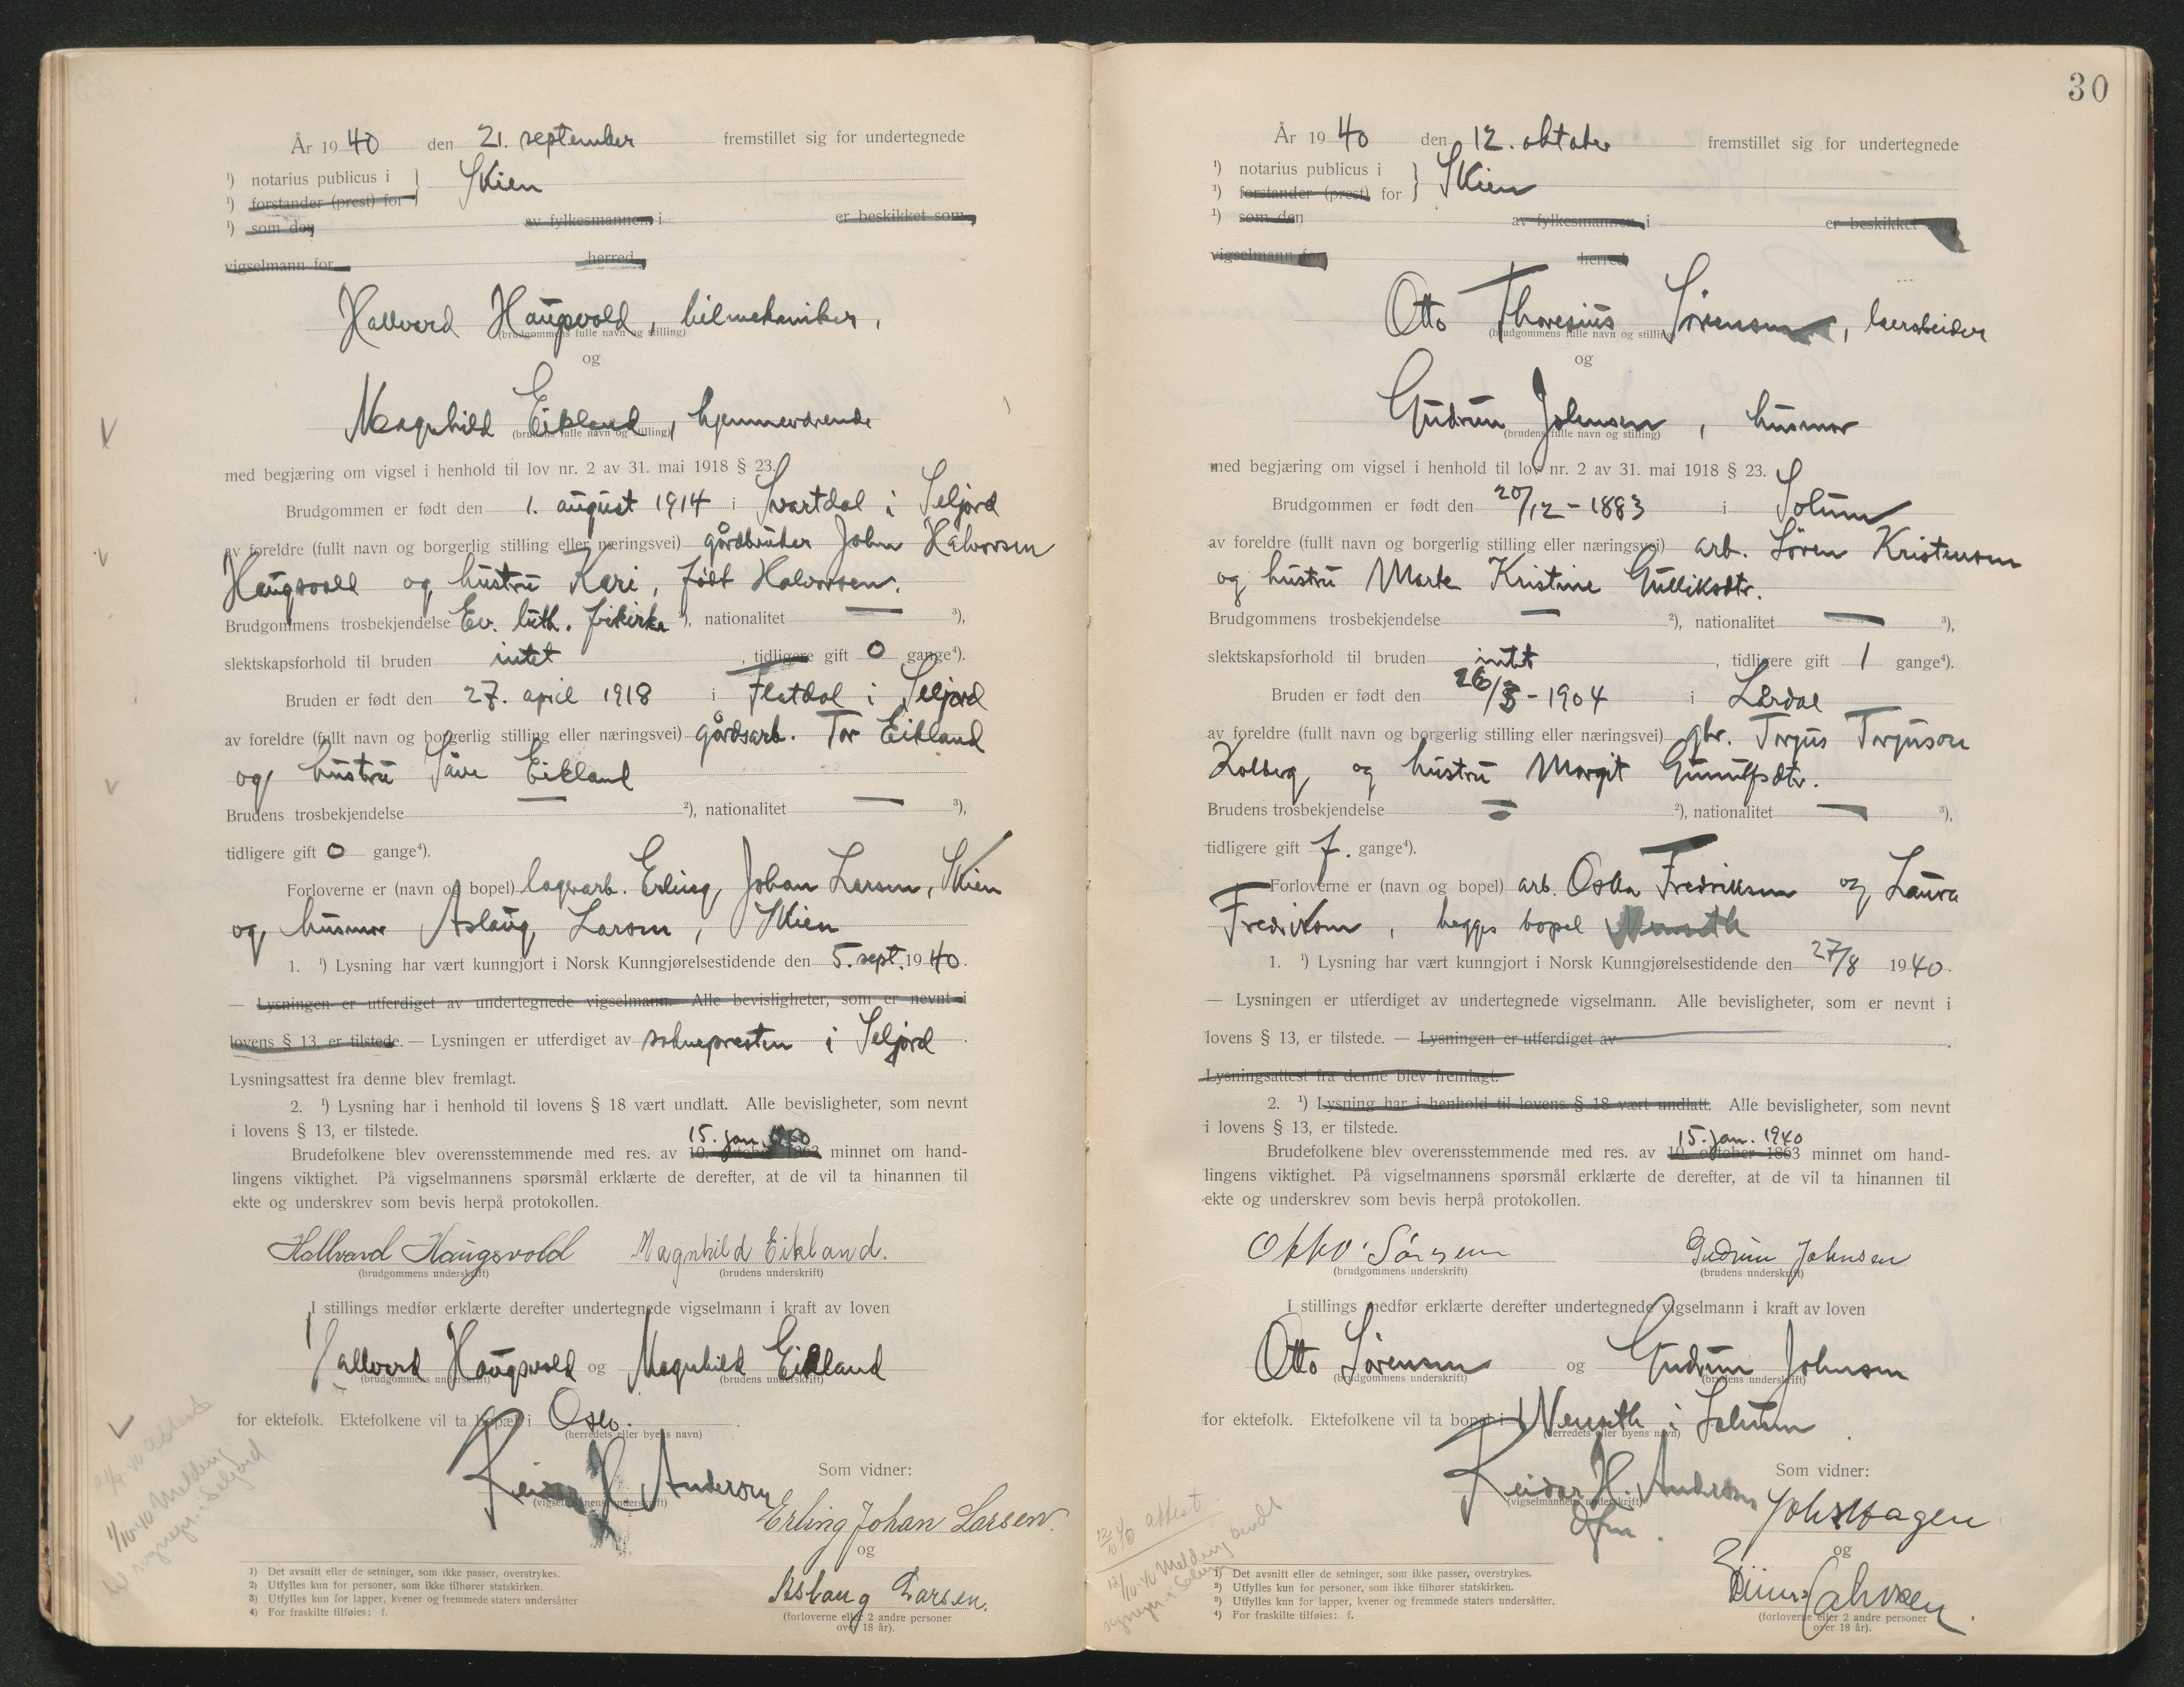 År 1940 den 21. september fremstillet sig for undertegnede
¹) notarius publicus i } Skien
¹) forstander (prest) for
¹) som den av fylkesmannen i er beskikket som
vigselmann for herred
Hallvard Haugsvold, bilmekaniker,
(brudgommens fulle navn og stilling)
og
Magnhild Eikland, hjemmeværende
(brudens fulle navn og stilling)
med begjæring om vigsel i henhold til lov nr. 2 av 31. mai 1918 § 23.
Brudgommen er født den 1. august 1914 i Svartdal i Seljord
av foreldre (fullt navn og borgerlig stilling eller næringsvei) gårdbruker John Halvorsen
Haugsvold og hustru Kari, født Halvorsen.
Brudgommens trosbekjendelse Ev. luth. frikirke ²), nationalitet — ³),
slektskapsforhold til bruden intet, tidligere gift 0 gange⁴).
Bruden er født den 27. april 1918 i Flatdal i Seljord
av foreldre (fullt navn og borgerlig stilling eller næringsvei) gårdsarb. Tor Eikland
og hustru Eikland
Brudens trosbekjendelse — ²), nationalitet — ³),
tidligere gift 0 gange⁴).
Forloverne er (navn og bopel) lagerarb. Erling Johan Larsen, Skien
og husmor Aslaug Larsen, Skien
1. ¹) Lysning har vært kunngjort i Norsk Kunngjørelsestidende den 5. sept. 1940.
— Lysningen er utferdiget av undertegnede vigselmann. Alle bevisligheter, som er nevnt i
lovens § 13, er tilstede. — Lysningen er utferdiget av soknepresten i Seljord
Lysningsattest fra denne blev fremlagt.
2. ¹) Lysning har i henhold til lovens § 18 vært undlatt. Alle bevisligheter, som nevnt
i lovens § 13, er tilstede.
15. jan.
Brudefolkene blev overensstemmende med res. av 10. oktober 1863 minnet om hand-
lingens viktighet. På vigselmannens spørsmål erklærte de derefter, at de vil ta hinannen til
ekte og underskrev som bevis herpå protokollen.
Hallvard Haugsvold Magnhild Eikland.
(brudgommens underskrift) (brudens underskrift)
I stillings medfør erklærte derefter undertegnede vigselmann i kraft av loven
Hallvard Haugsvold og Magnhild Eikland
(brudgommens underskrift) (brudens underskrift)
for ektefolk. Ektefolkene vil ta bopæl i Oslo.
(herredets eller byens navn)
Reidar H. Andersen
(vigselmannens underskrift)
Som vidner:
Erling Johan Larsen.
og
Aslaug Larsen.
(forloverne eller 2 andre personer
over 18 år).
attest
1/10-40 Melding
til sognepr. i Seljord
1) Det avsnitt eller de setninger, som ikke passer, overstrykes.
2) Utfylles kun for personer, som ikke tilhører statskirken.
3) Utfylles kun for lapper, kvener og fremmede staters undersåtter
4) For fraskilte tilføies: f.
30
År 1940 den 12. oktober fremstillet sig for undertegnede
¹) notarius publicus i } Skien
¹) forstander (prest) for
¹) som den av fylkesmannen i er beskikket som
vigselmann for herred
Otto Thoresius Sørensen,
(brudgommens fulle navn og stilling)
og
Gudrun Johnsen, husmor
(brudens fulle navn og stilling)
med begjæring om vigsel i henhold til lov nr. 2 av 31. mai 1918 § 23.
Brudgommen er født den 20/12-1883 i Solum
av foreldre (fullt navn og borgerlig stilling eller næringsvei) arb. Søren Kristensen
og hustru Marte Kristine Gulliksdtr.
Brudgommens trosbekjendelse — ²), nationalitet — ³),
slektskapsforhold til bruden intet, tidligere gift 1 gange⁴).
Bruden er født den 26/3-1904 i Lårdal
av foreldre (fullt navn og borgerlig stilling eller næringsvei) gbr. Torjus Torjuson
Kolberg og hustru Margit Gunulfsdtr.
Brudens trosbekjendelse — ²), nationalitet — ³),
tidligere gift f. gange⁴).
Forloverne er (navn og bopel) arb. Oskar Fredriksen og Laura
Fredriksen, begges bopel
1. ¹) Lysning har vært kunngjort i Norsk Kunngjørelsestidende den 27/8 1940.
— Lysningen er utferdiget av undertegnede vigselmann. Alle bevisligheter, som er nevnt i
lovens § 13, er tilstede. — Lysningen er utferdiget av
Lysningsattest fra denne blev fremlagt.
2. ¹) Lysning har i henhold til lovens § 18 vært undlatt. Alle bevisligheter, som nevnt
i lovens § 13, er tilstede.
15. jan. 1940
Brudefolkene blev overensstemmende med res. av 10. oktober 1863 minnet om hand-
lingens viktighet. På vigselmannens spørsmål erklærte de derefter, at de vil ta hinannen til
ekte og underskrev som bevis herpå protokollen.
Otto Sørensen Gudrun Johnsen
(brudgommens underskrift) (brudens underskrift)
I stillings medfør erklærte derefter undertegnede vigselmann i kraft av loven
Otto Sørensen og Gudrun Johnsen
(brudgommens underskrift) (brudens underskrift)
for ektefolk. Ektefolkene vil ta bopæl i Nenseth i Solum
(herredets eller byens navn)
Reidar H. Andersen
(vigselmannens underskrift)
Som vidner:
Joh. Hagen
og
(forloverne eller 2 andre personer
over 18 år).
12/10 40 attest
12/10-40 Melding sendt
sognepr. i Solum
¹) Det avsnitt eller de setninger, som ikke passer, overstrykes.
²) Utfylles kun for personer, som ikke tilhører statskirken.
³) Utfylles kun for lapper, kvener og fremmede staters undersåtter.
⁴) For fraskilte tilføies: f.